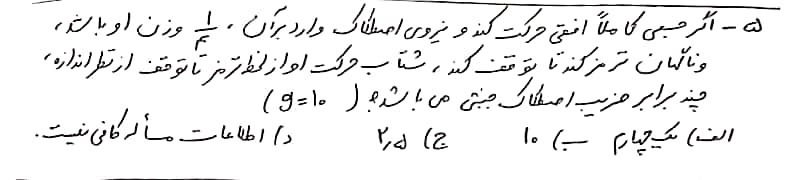 ۵ - اگر جسمی کاملاً افقی حرکت کند و نیروی اصطکاک وارد برآن، ۱/۴ وزن او باشد،
و ناگهان ترمز کند تا توقف کند، شتاب حرکت او از لحظه ترمز تا توقف از نظر اندازه،
چند برابر ضریب اصطکاک جنبشی می باشد؟ (g=۱۰)
الف) یک چهارم ب) ۱۰ ج) ۲٫۵ د) اطلاعات مسأله کافی نیست.